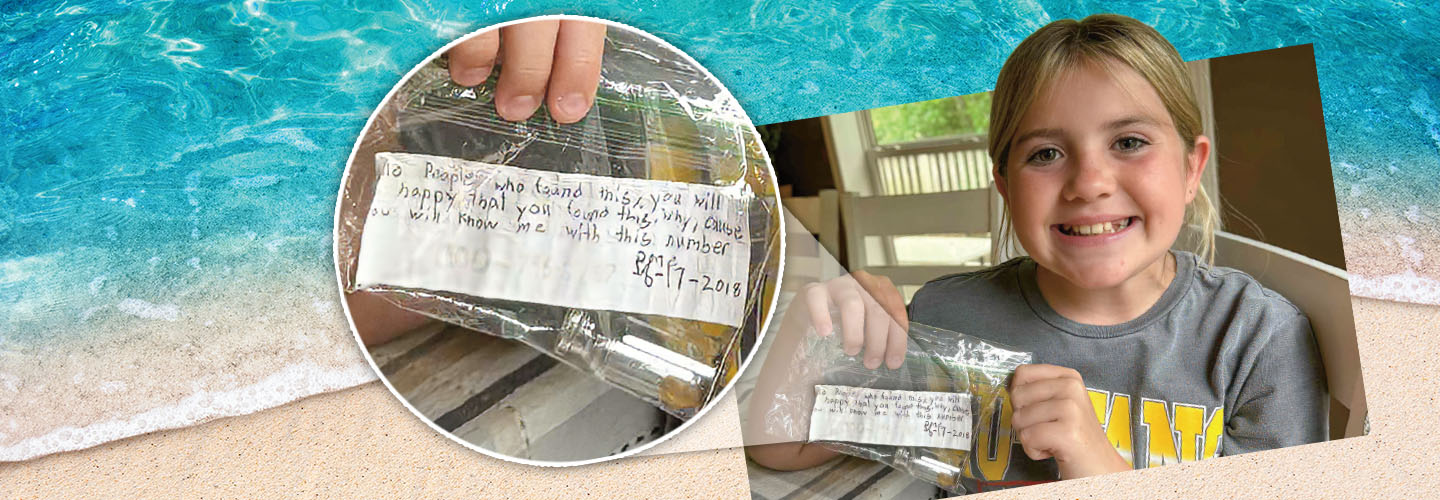 To People, who found this, you will
happy that you found this, why, cause
ou will know me with this number
6-17-2018
To People, who found this, you will
happy that you found this, why, cause
ou will know me with this number
6-17-2018
TANG